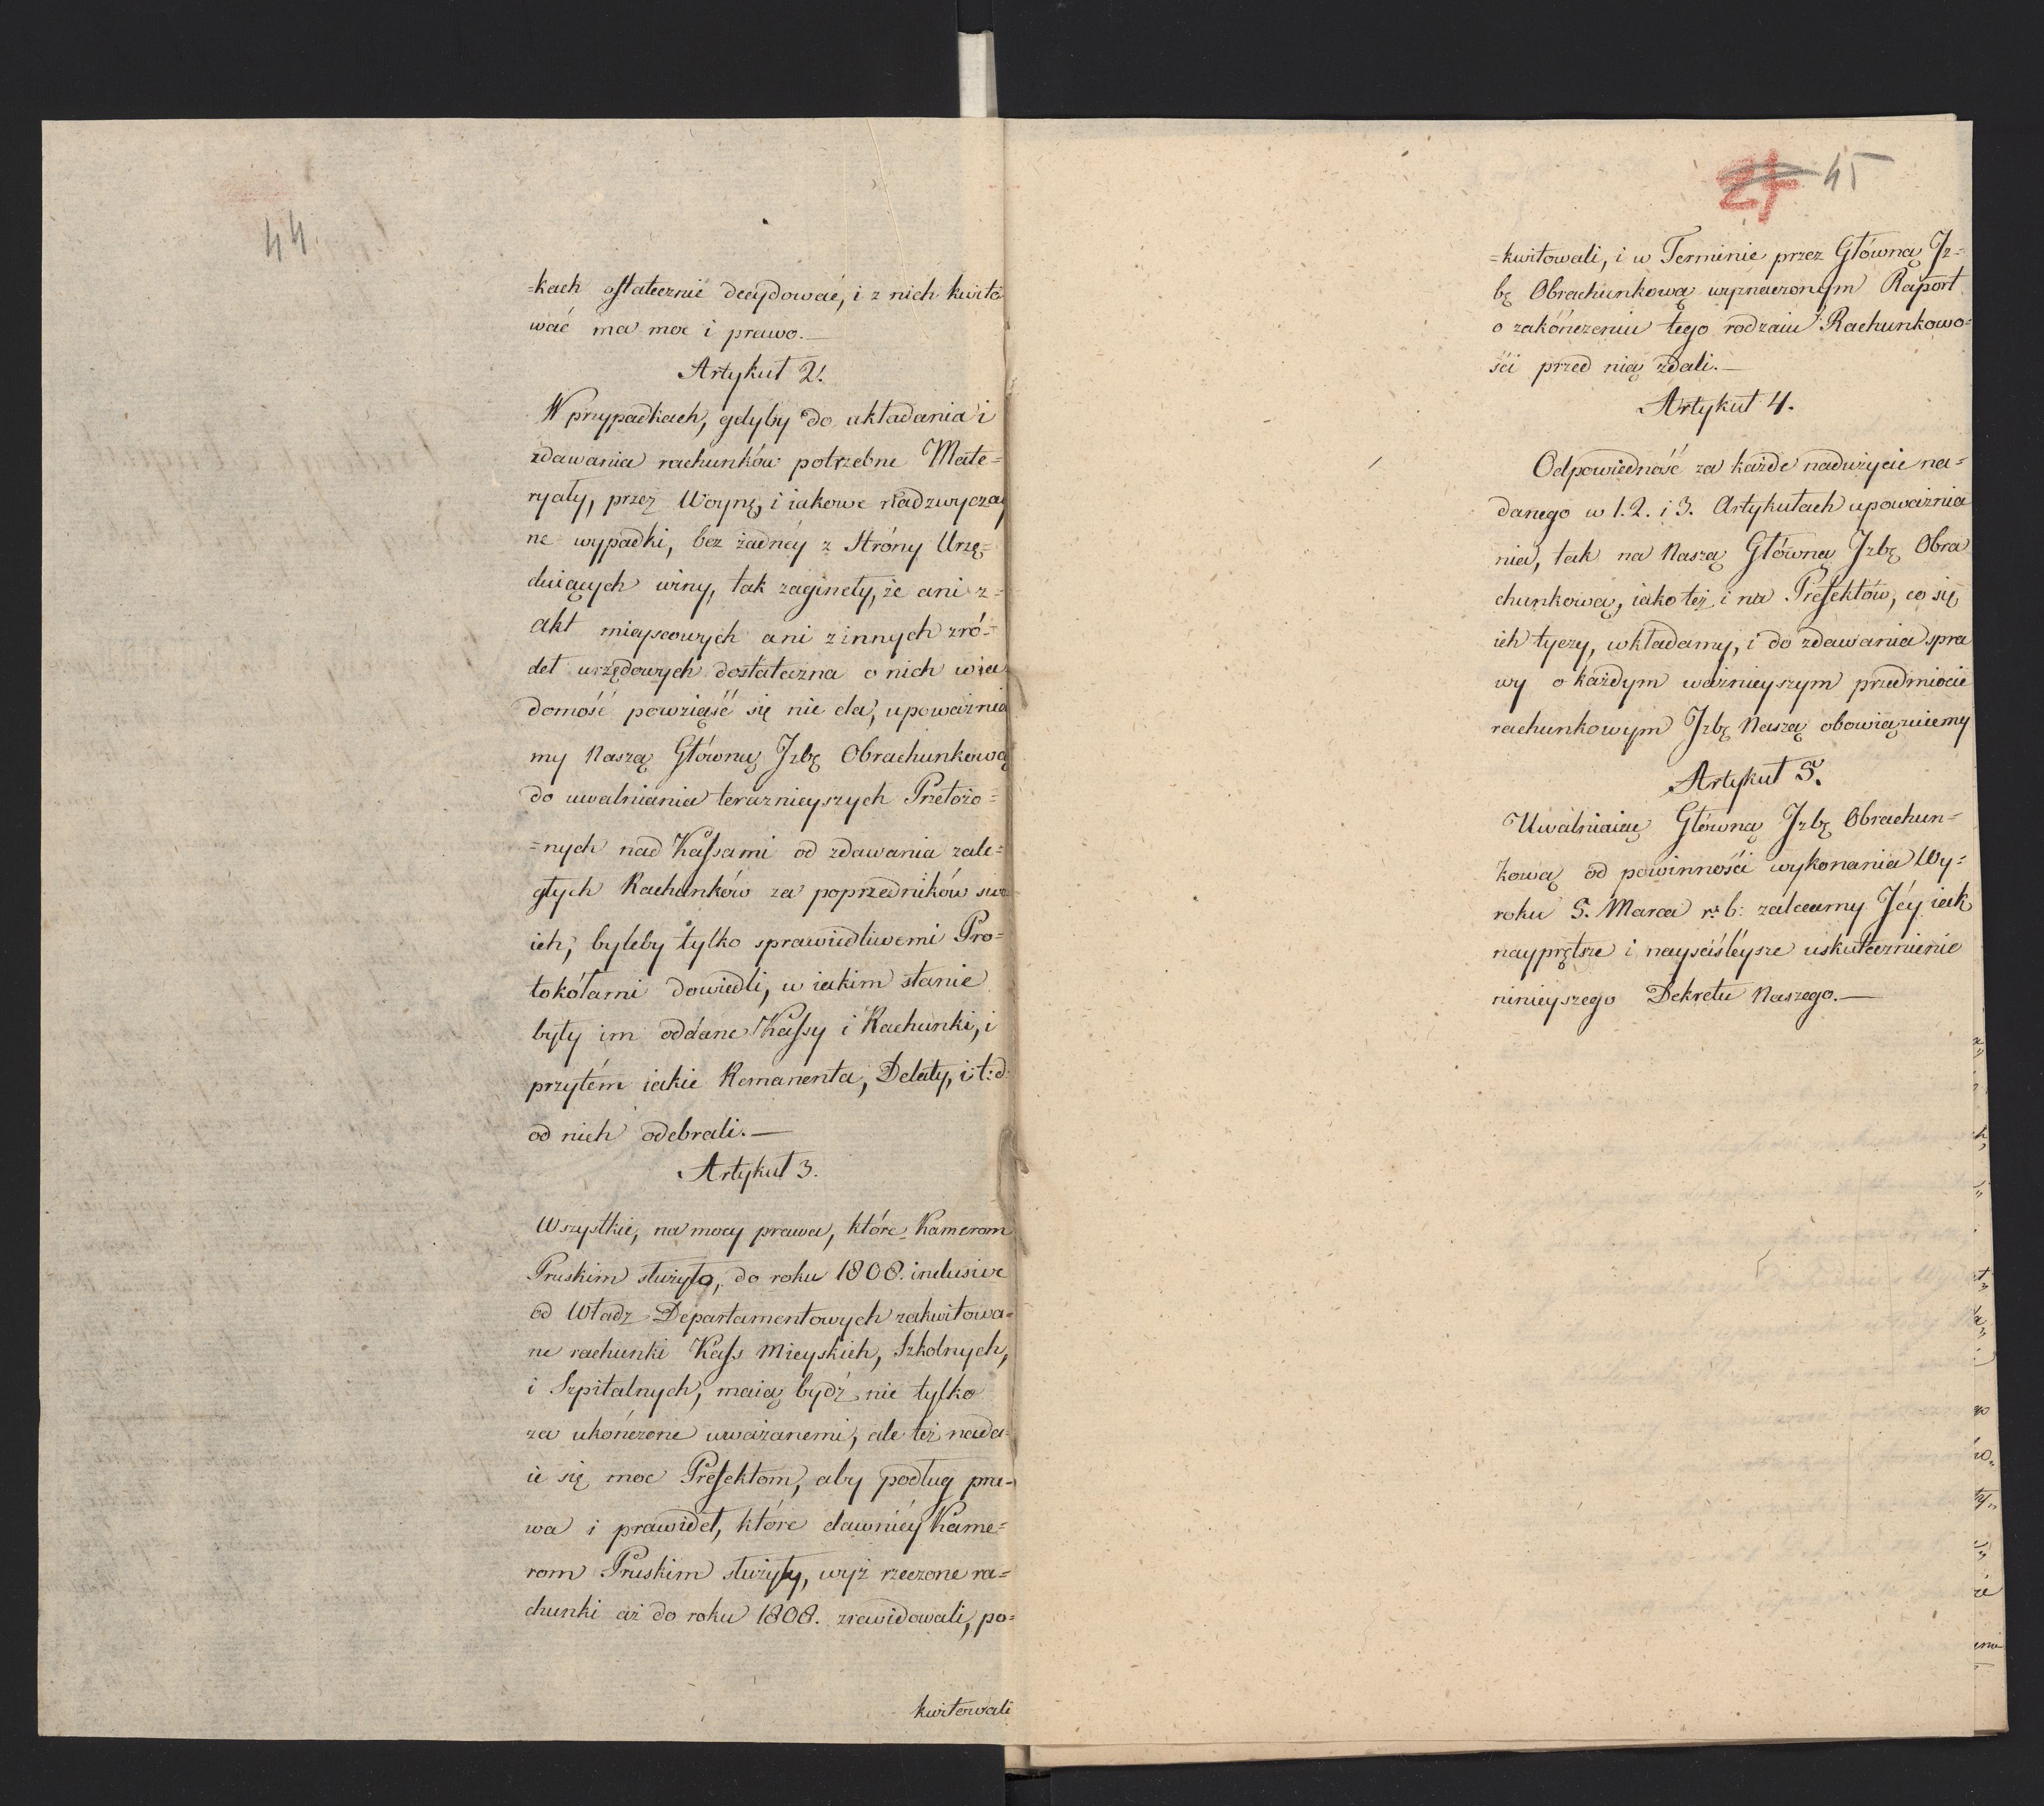 44.
=kach ostatecznie decydować, i z nich kwito
wać ma moc i prawo.—
Artykuł 2.
W przypadkach, gdyby do układania i
zdawania rachunków potrzebne Mate=
ryały, przez Woynę, i iakowe nadzwyczay
ne wypadki, bez żadnéy z Stróny Urzę=
duiących winy, tak zaginęły, że ani z=
akt mieyscowych ani z innych zró=
deł urzędowych dostateczna o nich wia
domość powziąść się nie da, upoważnia
my Naszą Główną Jzbę Obrachunkową
do uwalniania teraznieyszych Przełożo=
=nych nad Kassami od zdawania zale=
głych Rachunków za poprzedników swo
ich, byleby tylko sprawiedliwemi Pro=
tokółami dowiedli, w iakim stanie
były im oddane Kassy i Rachunki, i
przytém iakie Remanenta, Defekty, i t: d:
od nich odebrali.—
Artykuł 3.
Wszystkie, na mocy prawa, które Kamerom
Pruskim służyło, do roku 1808. inclusive
od Władz Departamentowych zakwitowa=
ne rachunki Kass Mieyskich, Szkolnych,
i Szpitalnych, maią bydź nie tylko
za ukończone uważanemi, ale też nada=
ie się moc Prefektom, aby podług pra=
wa i prawideł, które dawniéy Kame=
rom Pruskim służyły, wyż rzeczone ra=
chunki aż do roku 1808. zrewidowali, po=
kwitowali
21 45
=kwitowali, i w Terminie przez Główną Jz=
bę Obrachunkową wyznaczonym Raport
o zakończeniu tego rodzaiu Rachunkowo=
ści przed nią zdali.—
Artykuł 4.
Odpowiedność za każde nadużycie na=
danego w 1. 2. i 3. Artykułach upoważnia
nia, tak na Naszą Główną Jzbę Obra
chunkową, iako też i na Prefektów, co się
ich tyczy, wkładamy, i do zdawania spra
wy o każdym ważnieyszym przedmiocie
rachunkowym Jzbę Naszą obowiązuiemy
Artykuł 5.
Uwalniaiąc Główną Jzbę Obrachun=
kową od powinności wykonania Wy=
roku 5. Marca r: b: zalecamy Jéy iak
nayprętsze i nayściśléysze uskutecznienie
ninieyszego Dekretu Naszego.—